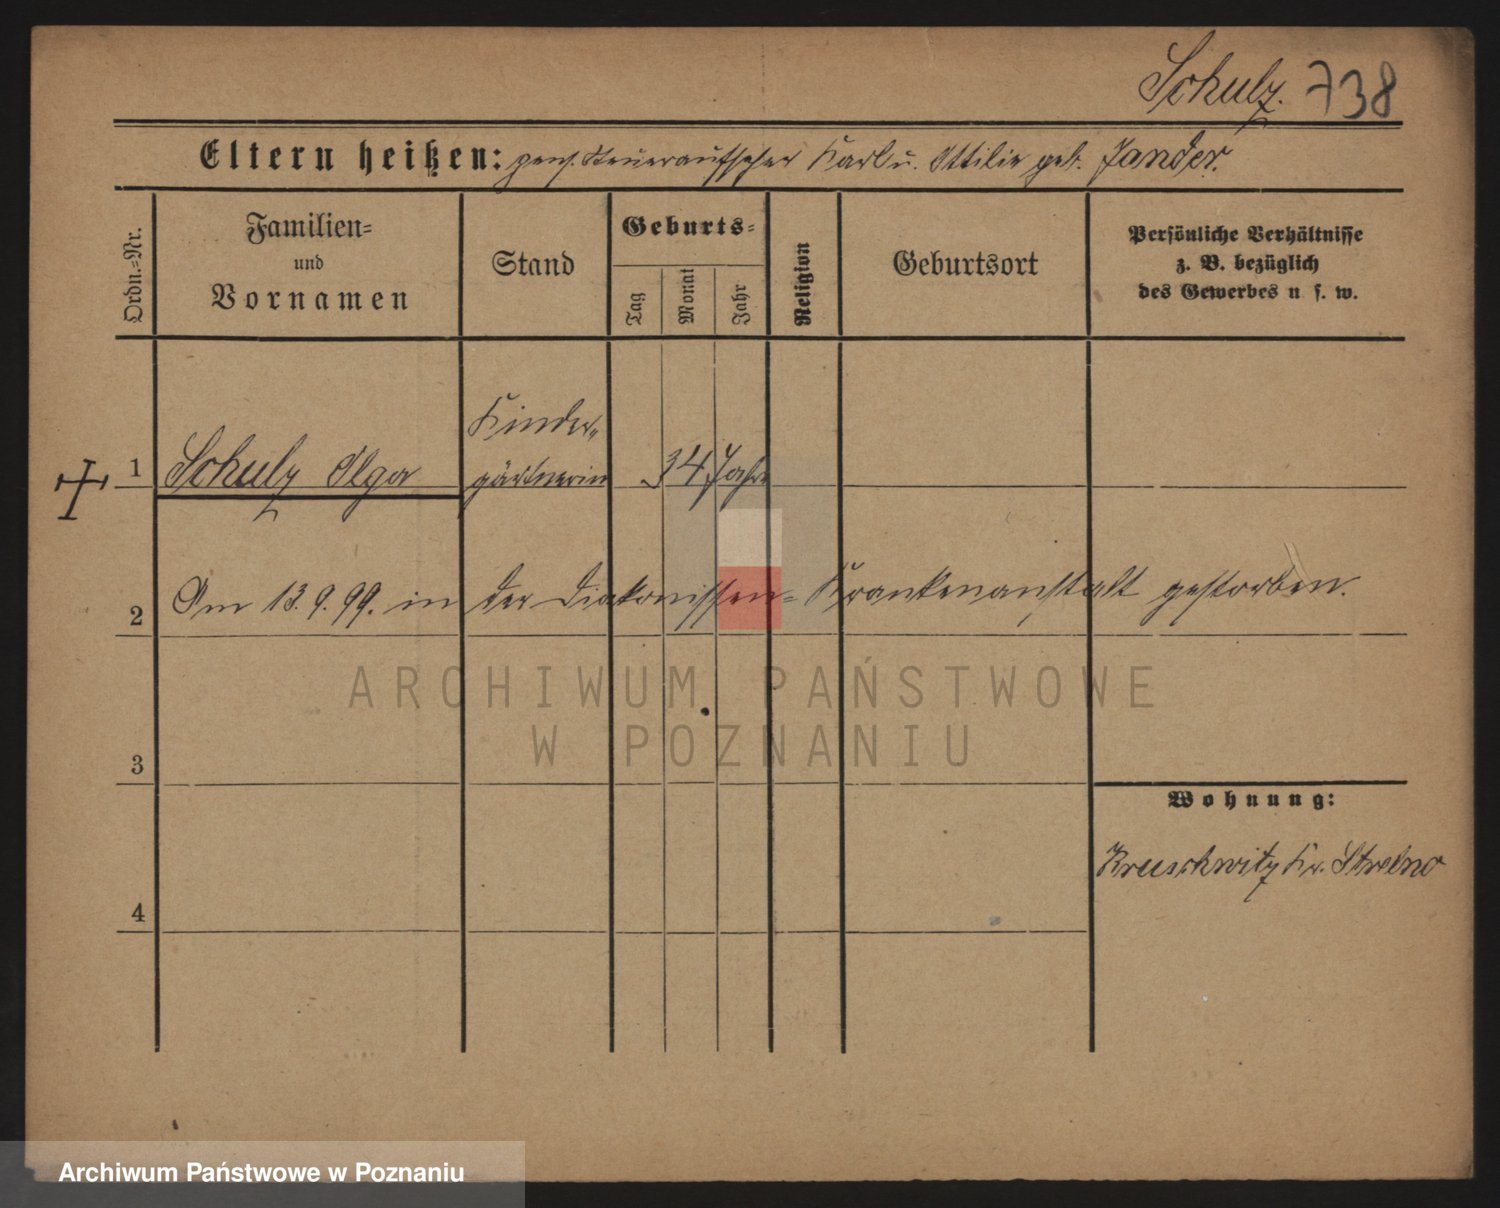 Schulz. 738
Eltern heißen: pens. Steueraufseher Karl u. Ottilie geb. Jander.
Ordn.-Nr.
Familien-
und
Vornamen
Stand
Geburts-
Tag
Monat
Jahr
Religion
Geburtsort
Persönliche Verhältnisse
z. B. bezüglich
des Gewerbes u. s. w.
Kinder-
1 Schulz Olga gärtnerin 34 Jahre
2 Am 13.9.99. in der Diakonissen- Krankenanstalt gestorben.
ARCHIWUM PAŃSTWOWE
W POZNANIU
3
Wohnung:
Kruschwitz Kr. Strelno
4
Archiwum Państwowe w Poznaniu